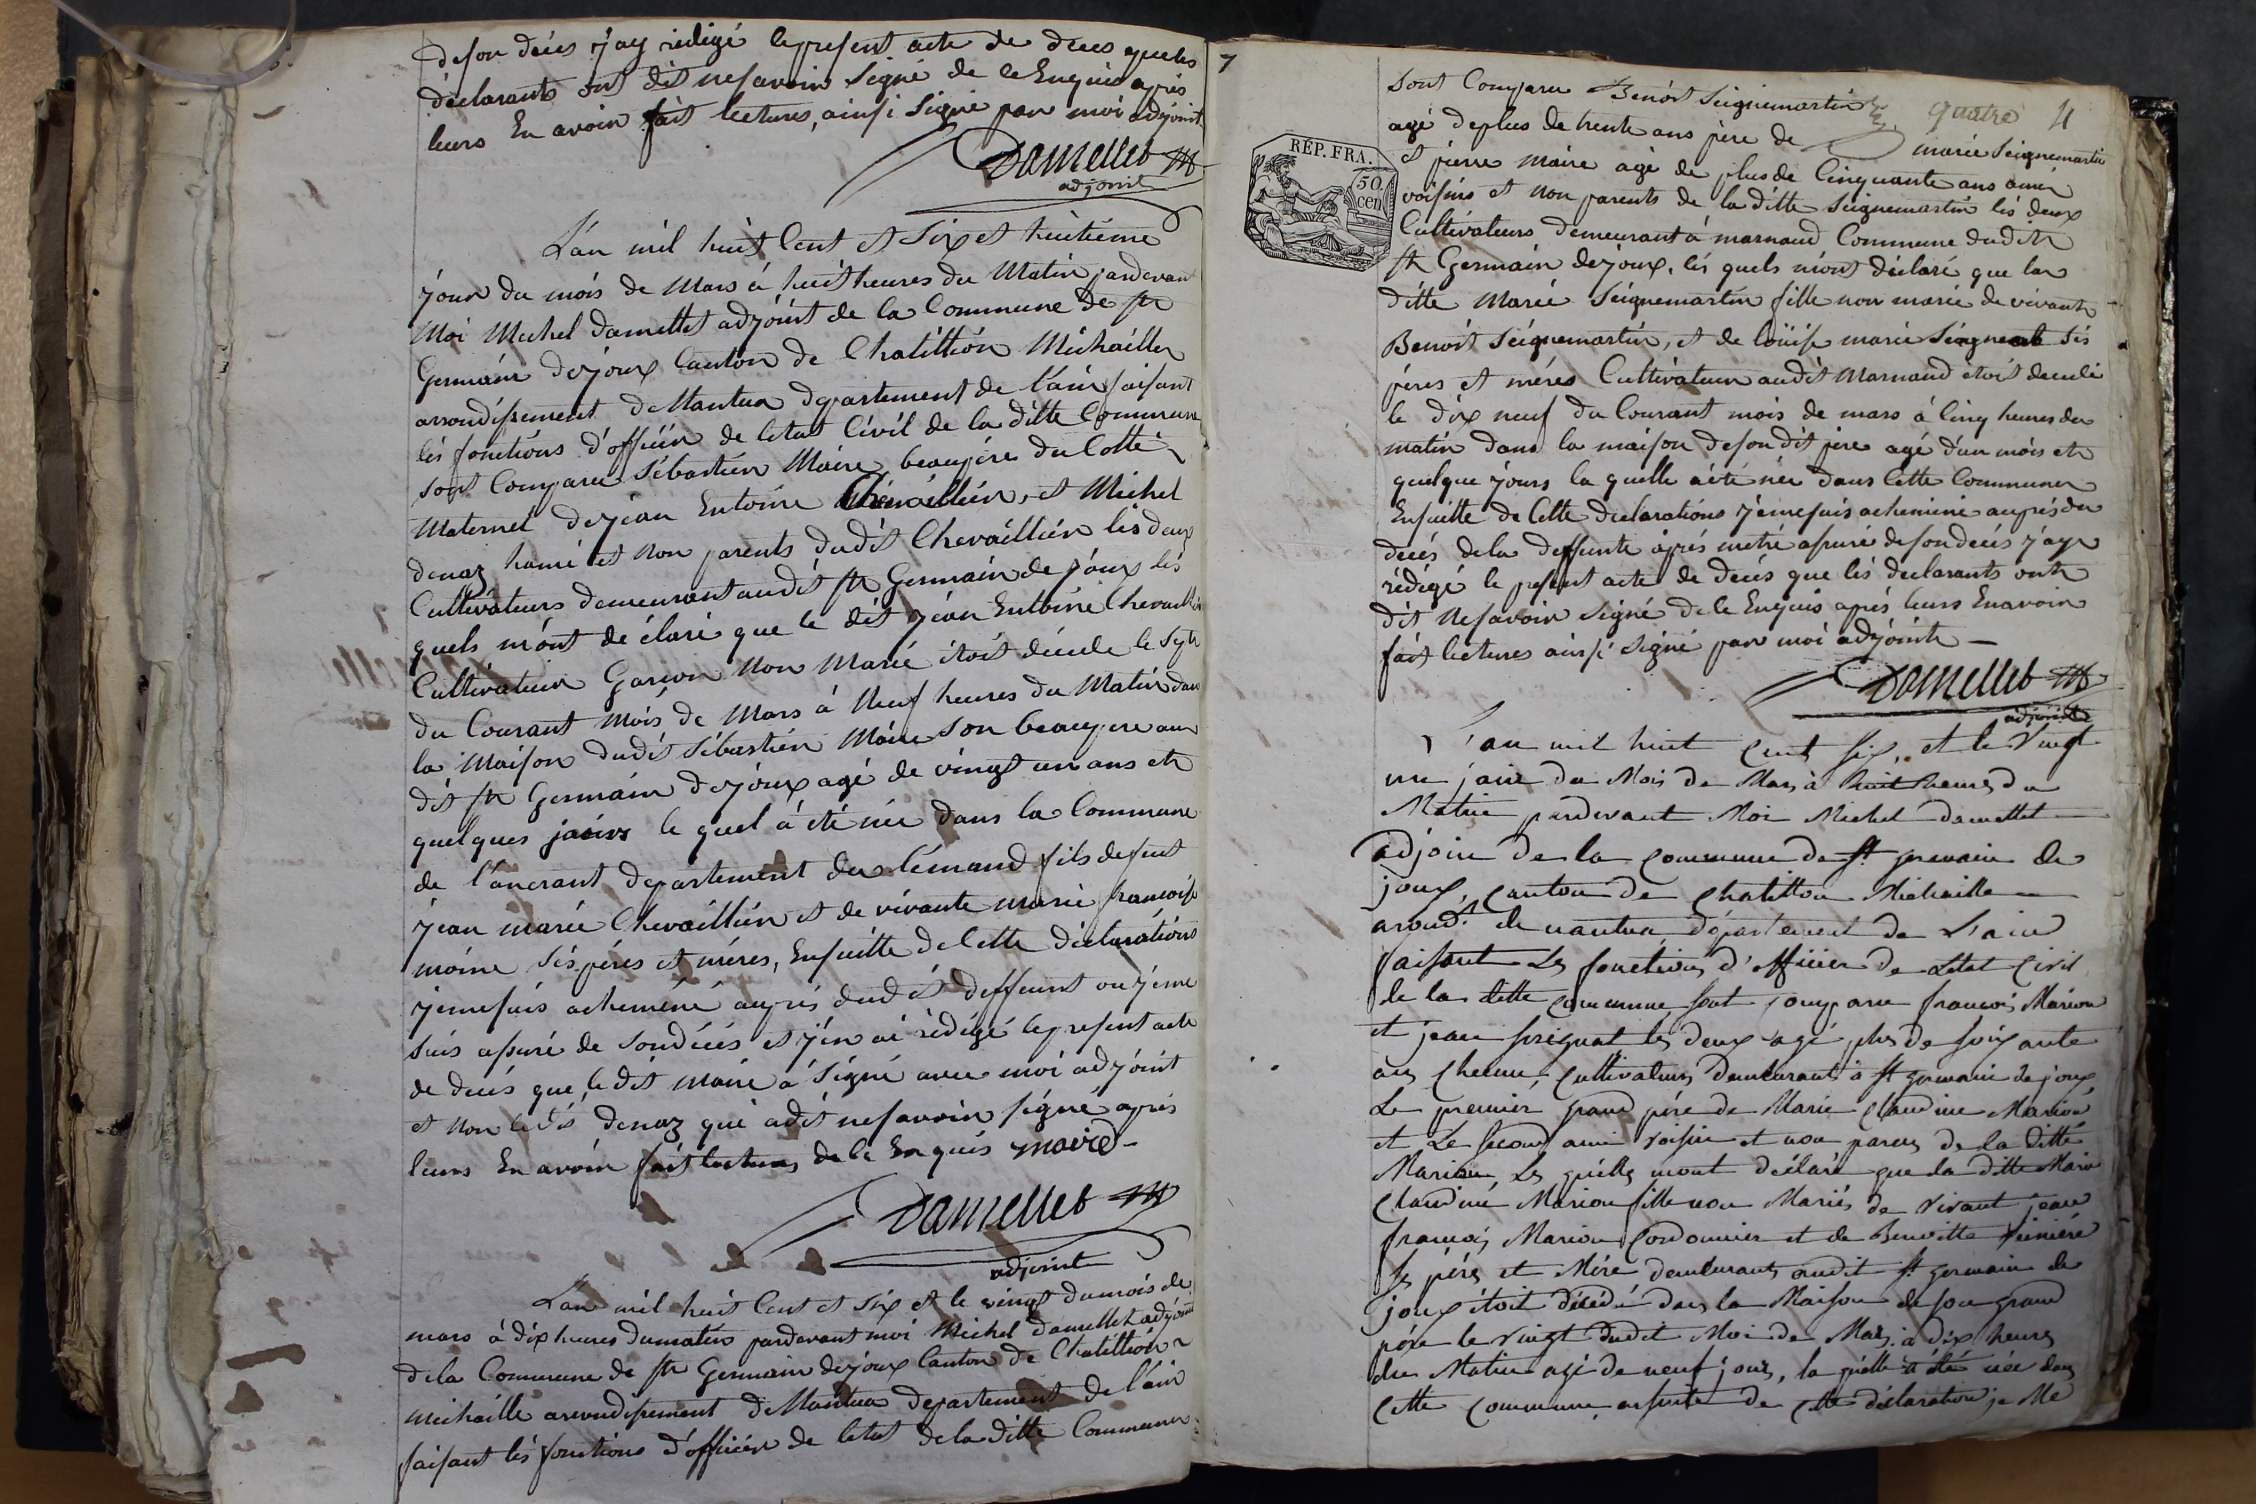 de son décès j'ay rédigé le present acte de décès que les
déclarants ont dit ne savoir signé de ce Enquis après
leurs En avoir fait lectures, ainsi signé par moi adjoint
Damellet
adjoint
L'an mil huit Cent et Six et huitième
jour du mois de Mars à huit heures du Matin pardevant
Moi Michel damellet adjoint de la Commune de St
Germain de joux Canton de Chatillion Michaille
arrondissement de Nantua departement de l'ain faisant
lés fonctions d'officier de letat Civil de la ditte Commune
sont Comparu Sébastien Moine beaupére du Cotté
Maternel de jean Entoine Chevaillier, et Michel
denaz hamé et Non parents dudit Chevaillier les deux
Cultivateurs demeurant audit St Germain de joux lés
quels m'ont déclaré que le dit jean Entoine Chevaillier
Cultivateur Garson Non Marié étoit décédé le Sept
du Courant mois de Mars à Neuf heures du Matin dans
la Maison dudit Sébastien Moine Son beaupere au
dit St Germain de joux agé de vingt un ans et
quelques jours le quel a été née dans la Commune
de l'ancrant departement du lémand fils de feut
jean marie Chevaillier et de vivante marie francoise
moine sés péres et méres, Ensuitte de Cette déclarations
je me suis acheminé auprés dudit deffeunt ou je me
suis assuré de son décés et j'en ai rédigé le present acte
de décés que le dit moine a signé avec moi adjoint
et non le dit denaz qui a dit ne savoir signé après
leurs En avoir fait lectures de ce Enquis moine
Damellet
adjoint
L'an mil huit Cent et Six et le vingt du mois de
mars à dix heures du matin pardevant moi Michel damellet adjoint
de la Commune de St Germain de joux Canton de Chatillion
michaille arrondissement de Nantua departement de l'ain
faisant lés fonctions d'officier de letat de la ditte Commune
7
quatre 4
RÉP. FRA.
50
cen
Sont Comparu Benoit Seignemartin
agé de plus de trente ans père de marie Seignemartin
et pierre maire agé de plus de Cinquante ans amis
voisins et non parents de la ditte Seignemartin lés deux
Cultivateurs demeurant à marnaud Commune dudit
St Germain de joux, lés quels m'ont déclaré que la
ditte Marie Seignemartin fille non marié de vivant
Benoit Seignemartin, et de loüise marie sés
péres et méres Cultivateur audit Marnaud étoit décédé
le dix neuf du Courant mois de mars à Cinq heures du
matin dans la maison de son dit pére agé d'un mois et
quelque jours la quelle à été née dans Cette Commune
Ensuitte de Cette declarations je me suis acheminé auprés du
décés de la deffunte après m'etre assuré de son decés j'ay
rédégé le present acte de decés que lés declarants ont
dit Ne savoir signé de Ce Enquis après leurs En avoir
fait lectures ainsi signé par moi adjoint
Damellet
adjoint
L'an mil huit Cent Six, et le vingt
un jour du Mois de Mars à huit heures du
Matin pardevant Moi Michel damellet
adjoin de la Commune de St germain de
joux, Canton de Chatillon Michaille
arond.t de nantua, département de L'ain
faisant Les fonctions d'officier de Letat Civil
de la ditte Commune Sont Comparu francois Marion
et jean les deux agé plus de soixante
ans Chacun, Cultivateurs demeurants à St germain de joux
Le premier grand pére de Marie Claudine Marion
et Le second ami voisin et non parens de la ditte
Marion, Les quelles mont déclaré que la ditte Marie
Claudine Marion fille non Mariés de vivant jean
francois Marion Cordonnier et de Benoitte
Ses pére et Mére demeurants audit St germain de
joux étoit décédé dans la Maison de son grand
pére le vingt dudit Moi de Mars à dix heures
du Matin agé de neuf jours, la quelle a été née dans
Cette Commune, ensuite de Cette déclaration je Me